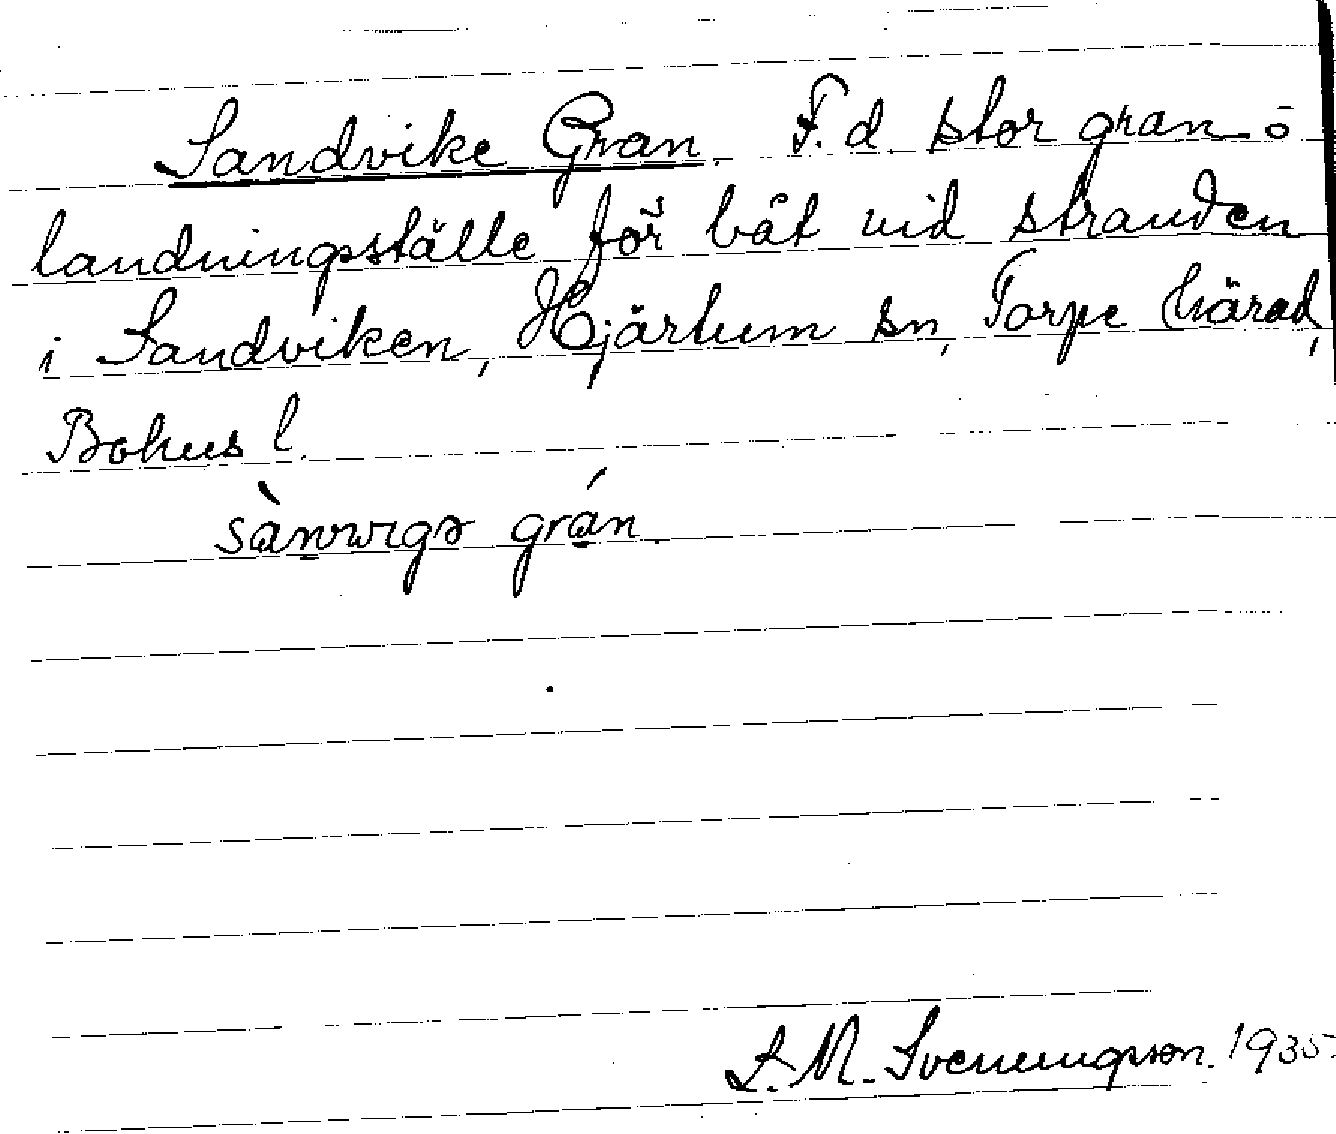 Sandvike Gran. F.d. stor gran o
landningsställe för båt vid stranden
i Sandviken, Hjärtum sn, Torpe härad,
Bohus l.
sànvvıgə grán.
L. M. Svenungsson. 1935.